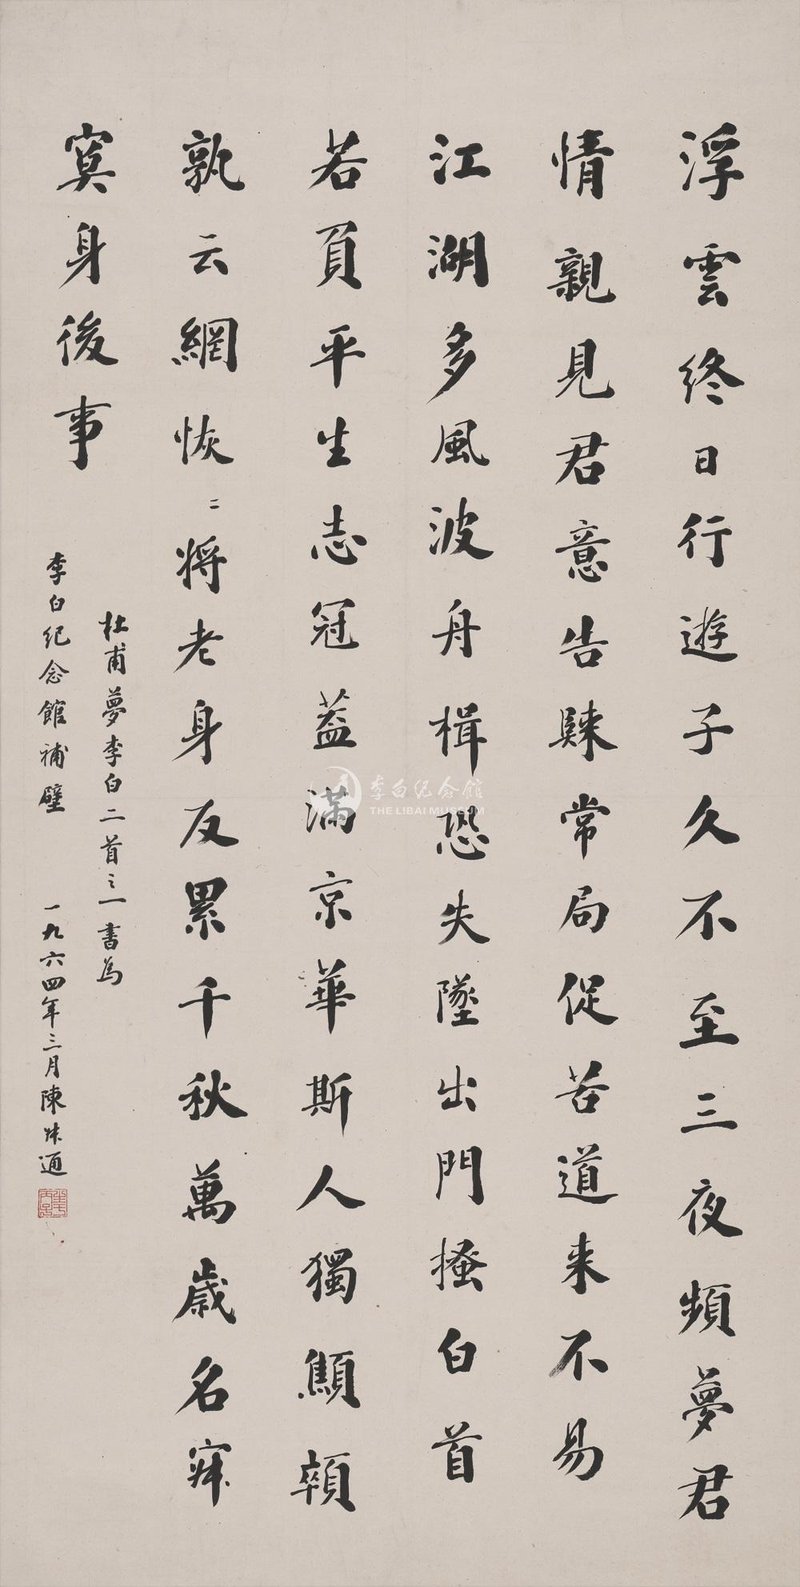 浮雲終日行遊子久不至三夜頻夢君
情親見君意告歸常局促苦道来不易
江湖多風波舟楫恐失墜出門搔白首
若負平生志冠蓋滿京華斯人獨顦顇
孰云網恢二將老身反累千秋萬歲名寂
寞身後事
杜甫夢李白二首之一書為
李白纪念館補壁 一九六四年三月陳叔通
李白纪念館
THE LIBAI MUSEUM